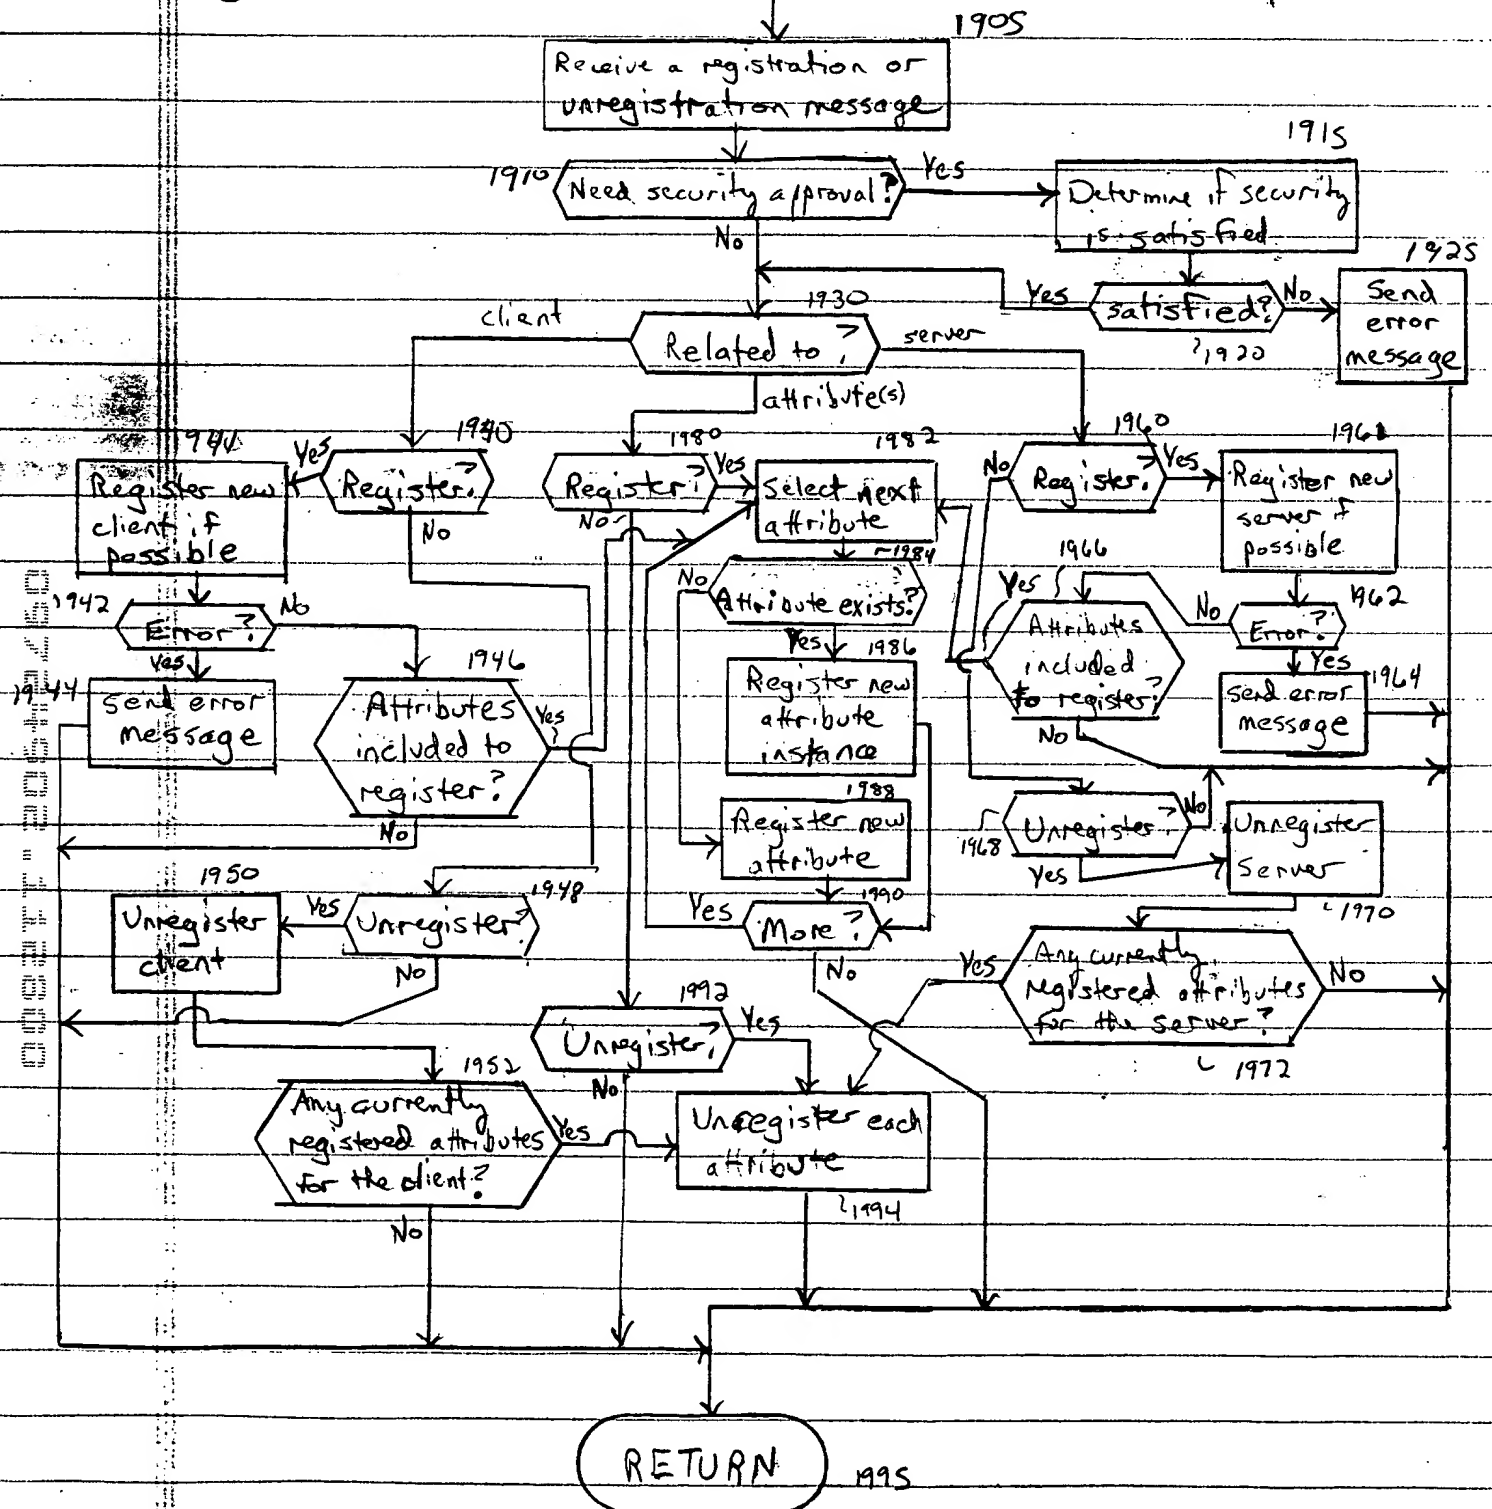 1905
Receive a registration or
unregistration message
1910
Need security approval?
Yes
No
1915
Determine if security
is satisfied
satisfied?
Yes
No
1920
1925
Send
error
message
1930
Related to?
client
attribute(s)
server
1940
Register?
Yes
No
Register new
client if
possible
1942
Error?
No
Yes
1944
Send error
message
1946
Attributes
included to
register?
Yes
No
1948
Unregister?
Yes
No
1950
Unregister
client
1952
Any currently
registered attributes
for the client?
Yes
No
1980
Register?
Yes
No
1982
Select next
attribute
1984
Attribute exists?
No
Yes
1986
Register new
attribute
instance
1988
Register new
attribute
1990
More?
Yes
No
1992
Unregister?
Yes
No
Unregister each
attribute
1994
1960
Register?
No
Yes
Register new
server if
possible
1962
Error?
No
Yes
1964
send error
message
1966
Attributes
included
to register?
Yes
No
1968
Unregister?
No
Yes
Unregister
Server
1970
Any currently
registered attributes
for the server?
Yes
No
1972
RETURN
1995